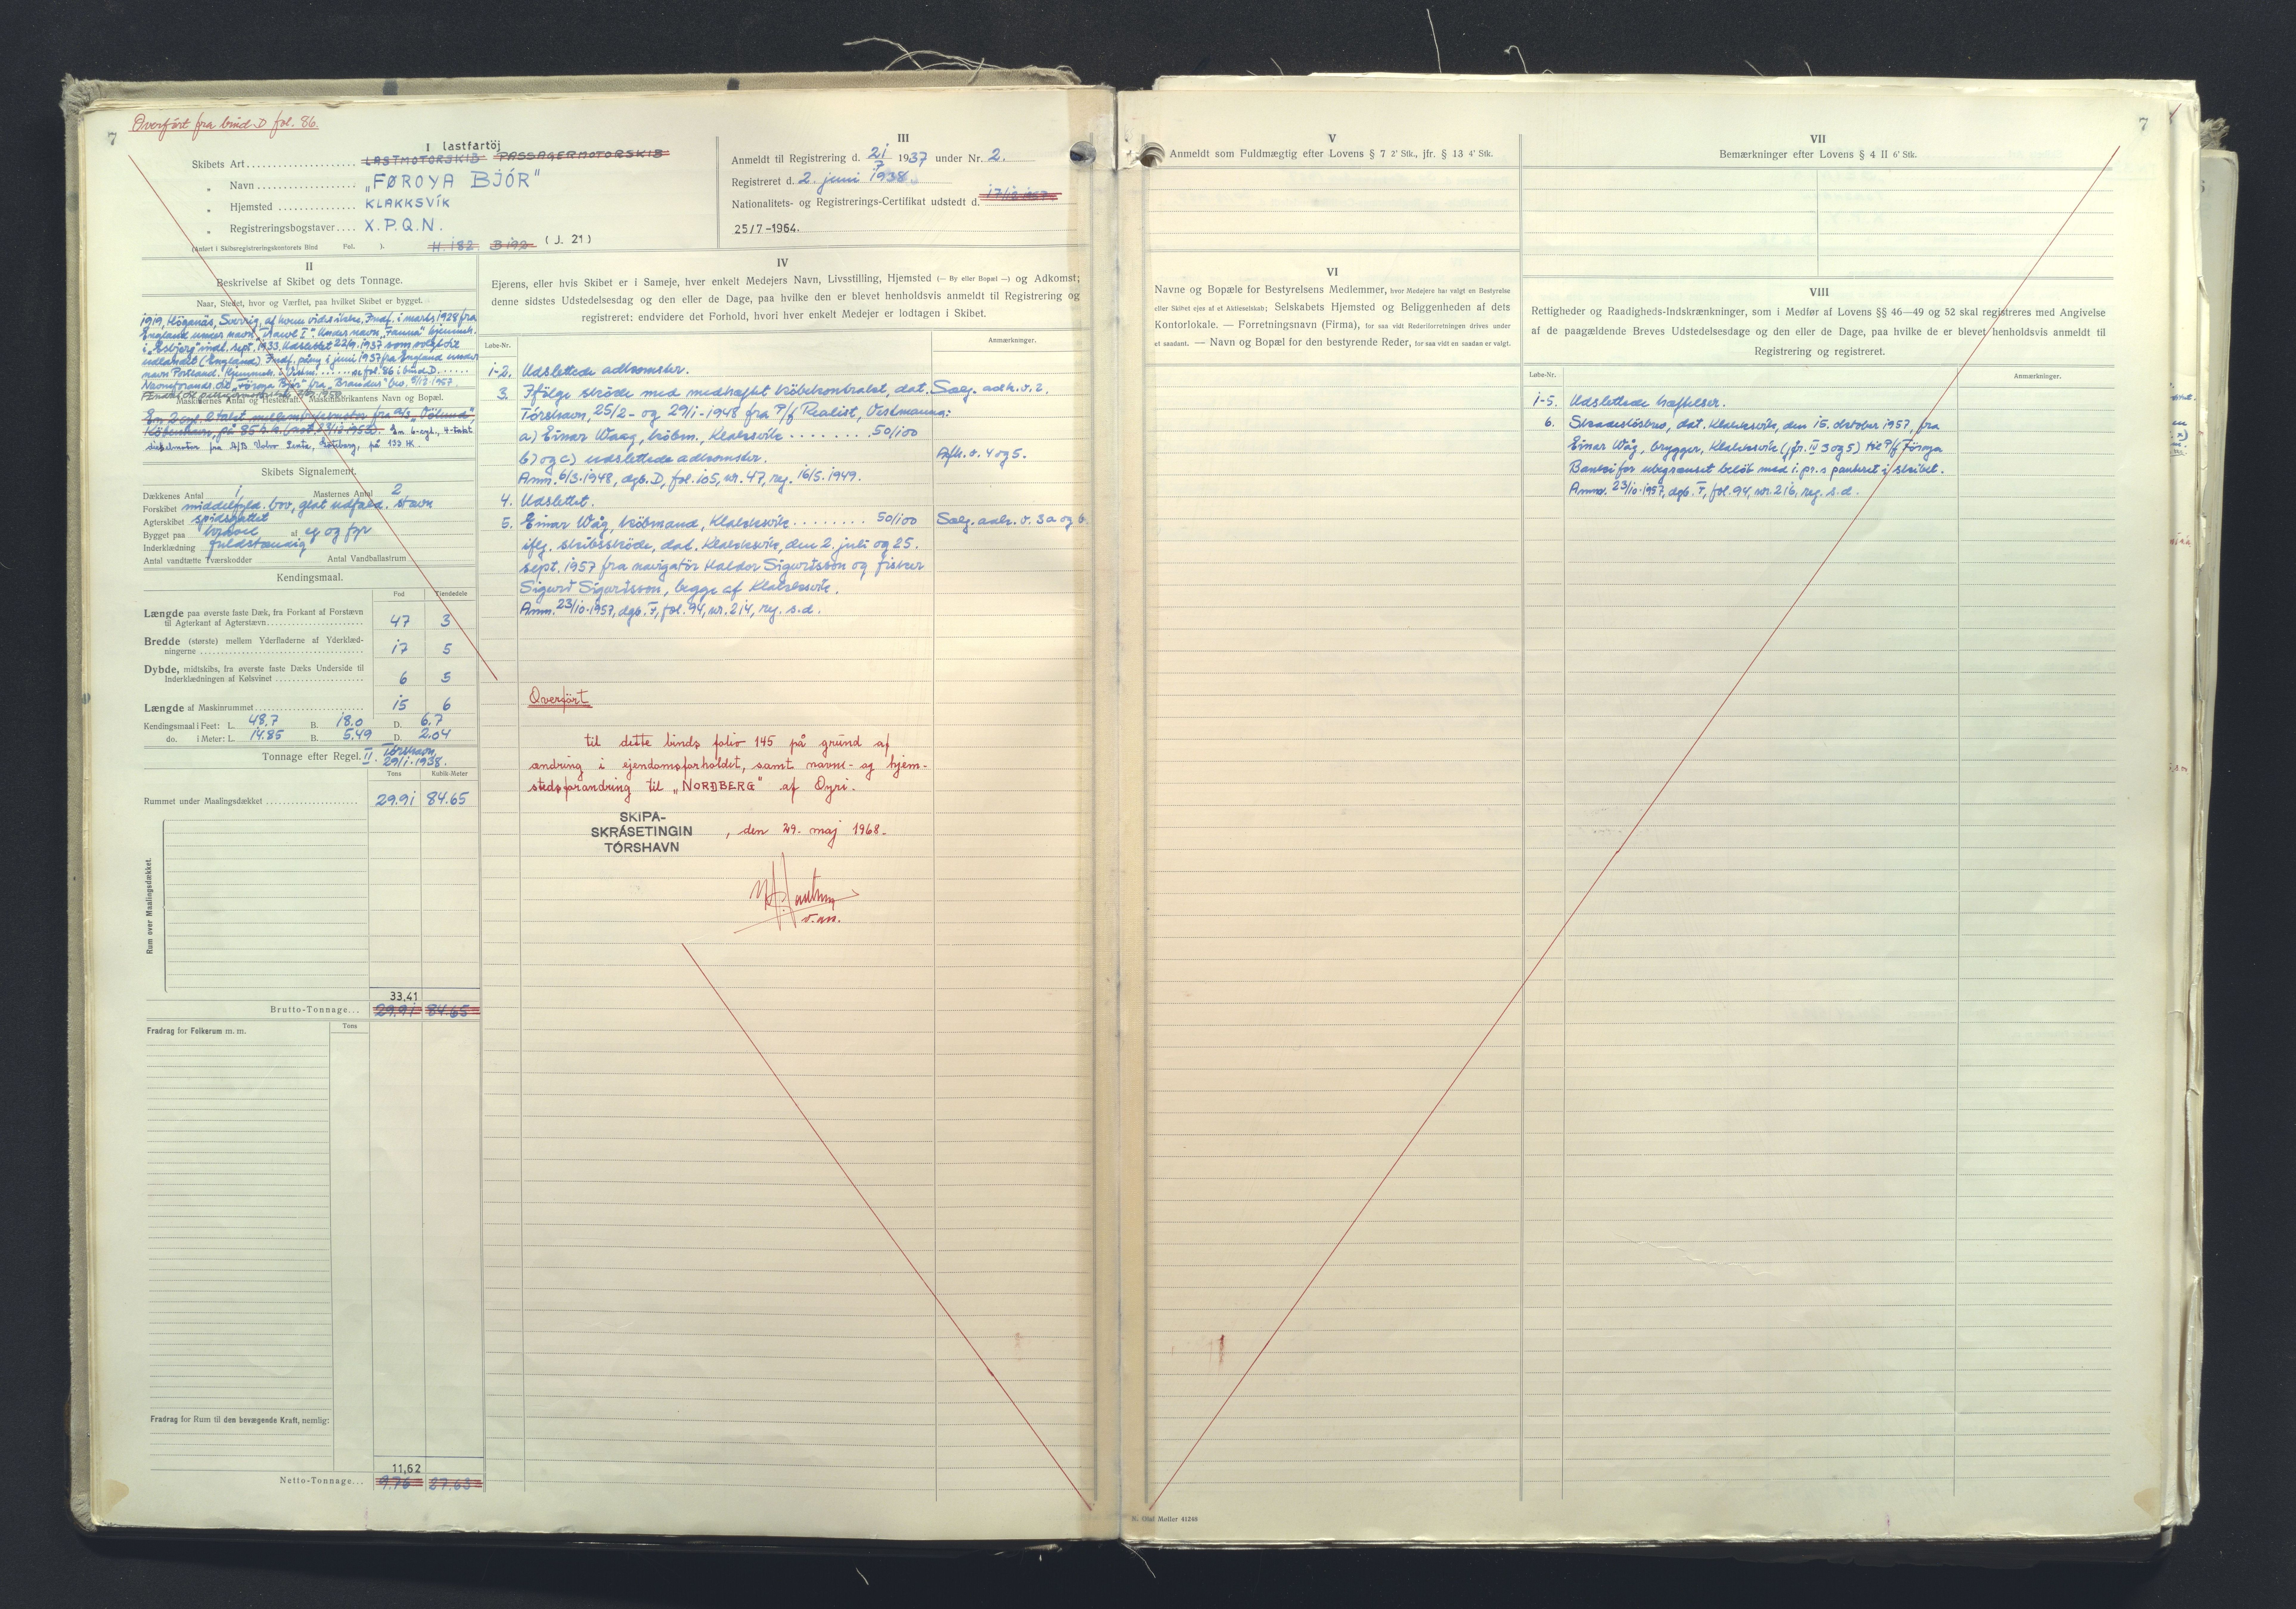 Overført fra bind D fol. 86.
7
I lastfartöj
Skibets Art LASTMOTORSKIB PASSAGERMOTORSKIB
„ Navn „FØROYA BJÓR"
„ Hjemsted KLAKKSVÍK
„ Registreringsbogstaver X.P.Q.N.
(Anført i Skibsregistreringskontorets Bind Fol. ). H. 182 B 192 (J. 21)
III
Anmeldt til Registrering d. 21/7 1937 under Nr. 2.
Registreret d. 2. juni 1938.
Nationalitets- og Registrerings-Certifikat udstedt d. 17/12 1957
25/7-1964.
II
Beskrivelse af Skibet og dets Tonnage.
Naar, Stedet, hvor og Værftet, paa hvilket Skibet er bygget.
1919, Höganäs, Sverrig, af hvem vides ikke. Indf. i marts 1928 fra
England under navn
i „Esbjerg" indt. sept. 1933. Udslettet 22/9. 1937 som solgt til
udlandet (England). Indf. påny i juni 1937 fra England under
navn Portland. Hjemmeh. i Vestm. ..... se fol. 86 i bind D. .....
Navneforandr. til „Föroya Bjór" fra „Brandur"
Maskinernes Antal og Hestekraft. Maskinfabrikantens Navn og Bopæl.
En 2 cyl. 2 takt mellemtryksmotor fra a/s „Völund",
København, på 85 h.k. En 6-cyl., 4-takt
dieselmotor fra A/B Volvo Penta, Göteborg, på 133 HK.
Skibets Signalement.
Dækkenes Antal 1 Masternes Antal 2
Forskibet middelfyld. bov, glat udfald. stævn
Agterskibet spidsgattet
Bygget paa kravel af eg og fyr
Inderklædning fuldstændig
Antal vandtætte Tværskodder Antal Vandballastrum
Kendingsmaal.
Fod Tiendedele
Længde paa øverste faste Dæk, fra Forkant af Forstævn
til Agterkant af Agterstævn 47 3
Bredde (største) mellem Yderfladerne af Yderklæd-
ningerne 17 5
Dybde, midtskibs, fra øverste faste Dæks Underside til
Inderklædningen af Kølsvinet 6 5
Længde af Maskinrummet 15 6
Kendingsmaal i Feet: L. 48.7 B. 18.0 D. 6.7
do. i Meter: L. 14.85 B. 5.49 D. 2.04
Tonnage efter Regel. II. Tórshavn, 29/1.1938.
Tons Kubik-Meter
Rummet under Maalingsdækket 29.91 84.65
Rum over Maalingsdækket.
33,41
Brutto-Tonnage... 29.91 84.65
Fradrag for Folkerum m. m. Tons
Fradrag for Rum til den bevægende Kraft, nemlig:
11,62
Netto-Tonnage... 9.76 27.63
IV
Ejerens, eller hvis Skibet er i Sameje, hver enkelt Medejers Navn, Livsstilling, Hjemsted (— By eller Bopæl —) og Adkomst;
denne sidstes Udstedelsesdag og den eller de Dage, paa hvilke den er blevet henholdsvis anmeldt til Registrering og
registreret; endvidere det Forhold, hvori hver enkelt Medejer er lodtagen i Skibet.
Løbe-Nr. Anmærkninger.
1-2. Udslettede adkomster.
3. Ifölge sköde med medhæftet köbekontrakt, dat. Sælg. adk. v. 2.
Tórshavn, 25/2- og 29/1-1948 fra P/f Realist, Vestmanna:
a) Einar Waag, köbm., Klaksvík ........ 50/100
b) og c) udslettede adkomster. Afh. v. 4 og 5.
Anm. 6/3.1948, dgb. D, fol. 105, nr. 47, reg. 16/5. 1949.
4. Udslettet.
5. Einar Wåg, købmand, Klakksvík ........ 50/100 Sælg. adk. v. 3a og b.
iflg. skibssköde, dat. Klakksvík, den 2. juli og 25.
sept. 1957 fra navigatör Haldor Sigurdsson og fisker
Sigurd Sigurdsson, begge af Klakksvík.
Anm. 23/10.1957, dgb. F, fol. 94, nr. 214, reg. s.d.
Overført
til dette binds folio 145 på grund af
ændring i ejendomsforholdet, samt navne- og hjem-
stedsforandring til „NORÐBERG" af Oyri.
SKIPA-
SKRÁSETINGIN
TÓRSHAVN
, den 29. maj 1968.
V
Anmeldt som Fuldmægtig efter Lovens § 7 2' Stk., jfr. § 13 4' Stk.
VI
Navne og Bopæle for Bestyrelsens Medlemmer, hvor Medejere har valgt en Bestyrelse
eller Skibet ejes af et Aktieselskab; Selskabets Hjemsted og Beliggenheden af dets
Kontorlokale. — Forretningsnavn (Firma), for saa vidt Rederiforretningen drives under
et saadant. — Navn og Bopæl for den bestyrende Reder, for saa vidt en saadan er valgt.
VII
7
Bemærkninger efter Lovens § 4 II 6' Stk.
VIII
Rettigheder og Raadigheds-Indskrænkninger, som i Medfør af Lovens §§ 46—49 og 52 skal registreres med Angivelse
af de paagældende Breves Udstedelsesdage og den eller de Dage, paa hvilke de er blevet henholdsvis anmeldt til
Registrering og registreret.
Løbe-Nr. Anmærkninger.
1-5. Udslettede hæftelser.
6. Skadeslösbrev, dat. Klakksvík, den 15. oktober 1957, fra
Einar Wåg, brygger, Klakksvík (jfr. IV 3 og 5) til P/f Föroya
Banki for ubegrænset beløb med 1. pr.s panteret i skibet.
Anm. 23/10.1957, dgb. F, fol. 94, nr. 216, reg. s.d.
Olaf Møller 41248